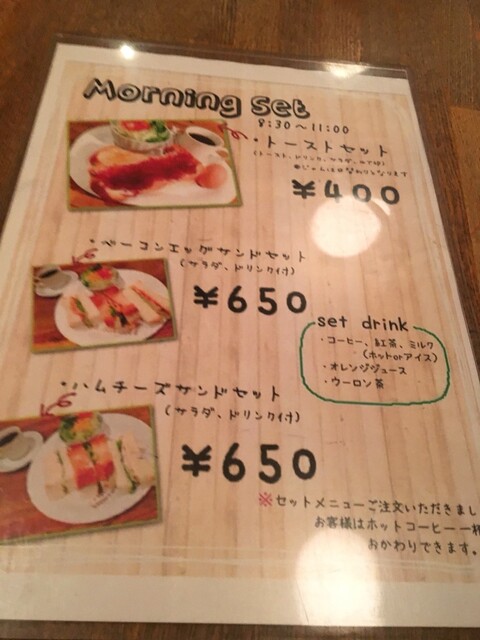 Morning Set
8:30～11:00
・トーストセット
(トースト、ドリンク、サラダ、ゆで卵)
※じゃムは日替わりとなります
¥400
・ベーコンエッグサンドセット
(サラダ、ドリンク付)
¥650
set drink
・コーヒー、紅茶、ミルク
(ホットorアイス)
・オレンジジュース
・ウーロン茶
・ハムチーズサンドセット
(サラダ、ドリンク付)
¥650
※セットメニューご注文いただきまし
お客様はホットコーヒー一杯
おかわりできます。